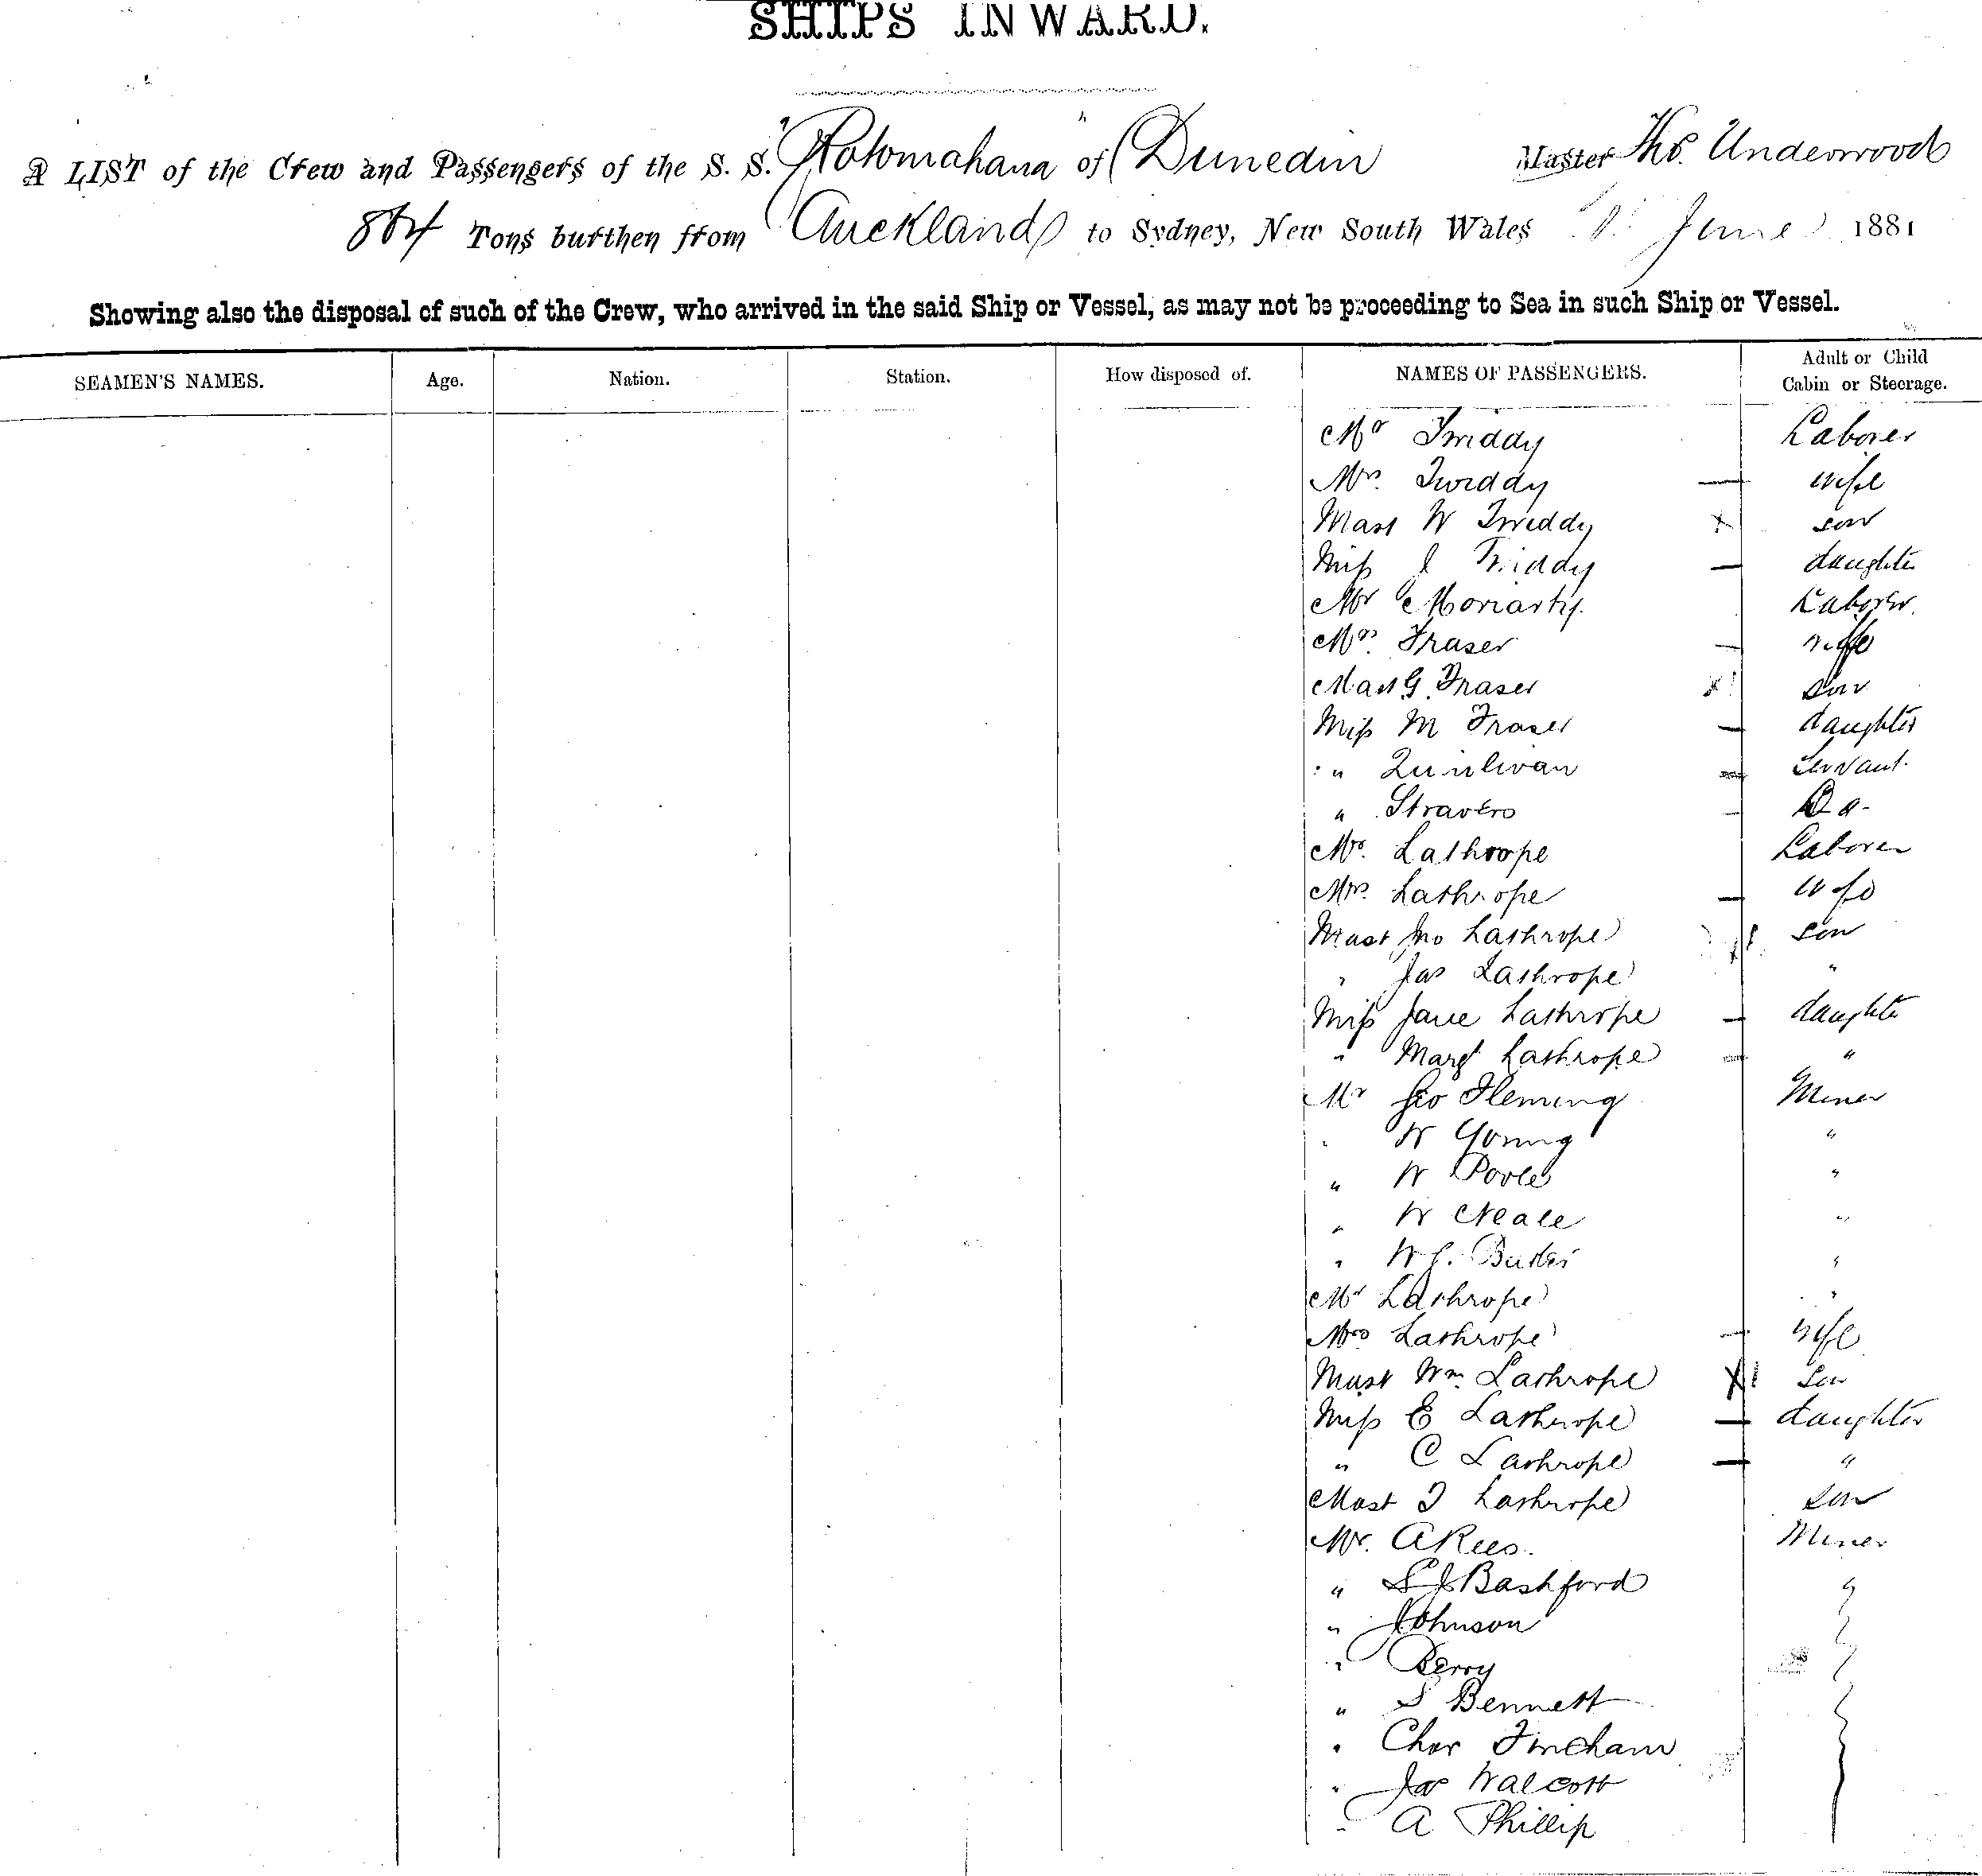 SHIPS INWARD.
A LIST of the Crew and Passengers of the S. S. "Rotomahana" of Dunedin Master Thos. Underwood
864 Tons burthen from Auckland to Sydney, New South Wales June 1881
Showing also the disposal of such of the Crew, who arrived in the said Ship or Vessel, as may not be proceeding to Sea in such Ship or Vessel.
SEAMEN'S NAMES. Age. Nation. Station. How disposed of. NAMES OF PASSENGERS. Adult or Child Cabin or Steerage.
Mr Twiddy Laborer
Mrs. Twiddy — wife
Mast W Twiddy x son
Miss J Twiddy — daughter
Mr Moriarty. Laborer.
Mrs. Fraser — wife
Mast G. Fraser x son
Miss M Fraser — daughter
" Quinlivan — Servant.
" — Do-
Mr. Lathrope Laborer
Mrs. Lathrope — wife
Mast Jno Lathrope son
" Jas Lathrope "
Miss Jane Lathrope — daughter
" Margt Lathrope — "
Mr Geo Fleming Miner
" W Young "
" W Poole "
" W Neale "
" W "
Mr Lathrope "
Mrs Lathrope — wife
Mast Wm. Lathrope x son
Miss E Lathrope — daughter
" C Lathrope — "
Mast J Lathrope son
Mr. A Rees. Miner
" S J Bashford "
" Johnson
" Berry
" S Bennett
" Chas Fincham
" Jas Walcott
" A Phillip